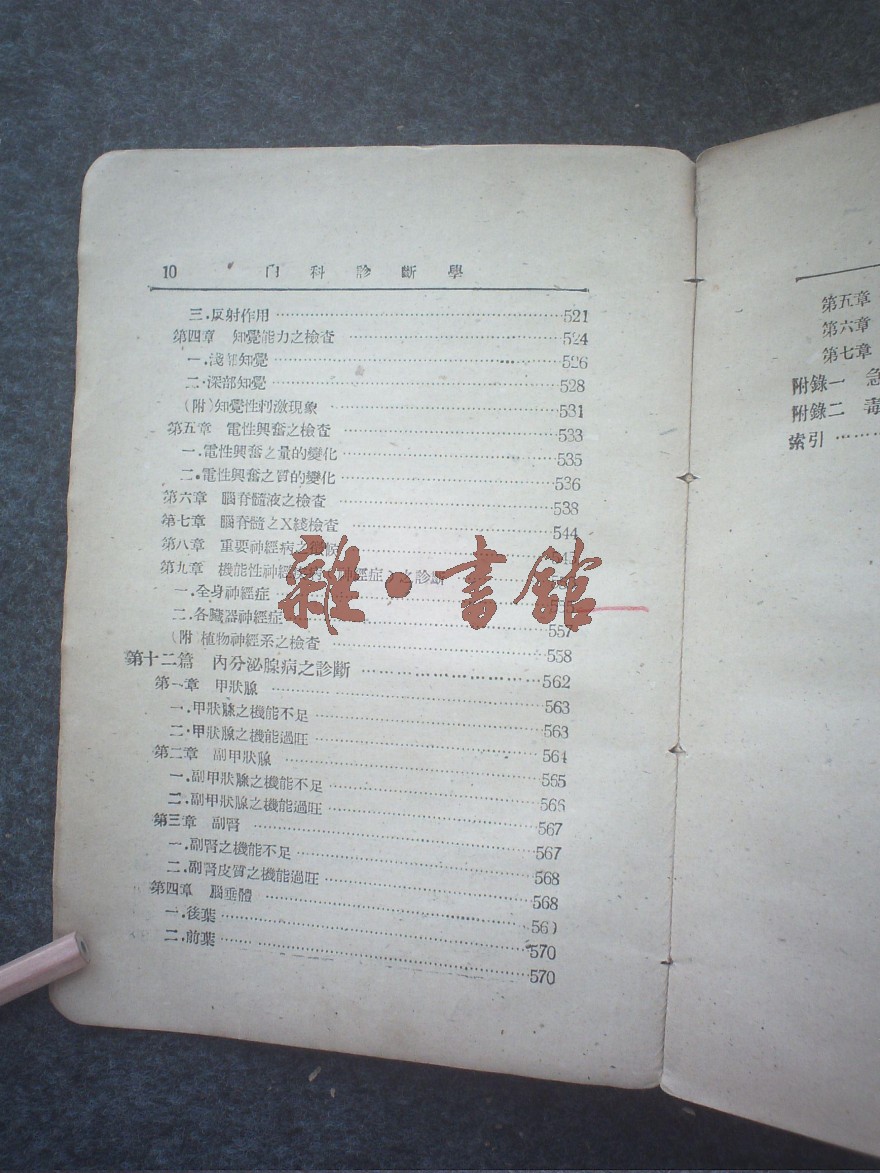 10 內科診斷學
三.反射作用 521
第四章 知覺能力之檢查 524
一.淺部知覺 526
二.深部知覺 528
(附)知覺性刺激現象 531
第五章 電性興奮之檢查 533
一.電性興奮之量的變化 535
二.電性興奮之質的變化 536
第六章 腦脊髓液之檢查 538
第七章 腦脊髓之X綫檢查 544
第八章 重要神經病之徵候
第九章 機能性神經 神經症)之診斷
一.全身神經症
二.各臟器神經症 557
(附)植物神經系之檢查 558
第十二篇 內分泌腺病之診斷 562
第一章 甲狀腺 563
一.甲狀腺之機能不足 563
二.甲狀腺之機能過旺 564
第二章 副甲狀腺 565
一.副甲狀腺之機能不足 566
二.副甲狀腺之機能過旺 567
第三章 副腎 567
一.副腎之機能不足 568
二.副腎皮質之機能過旺 568
第四章 腦垂體 569
一.後葉 570
二.前葉 570
雜·書館
第五章
第六章
第七章
附錄一 急
附錄二 毒
索引